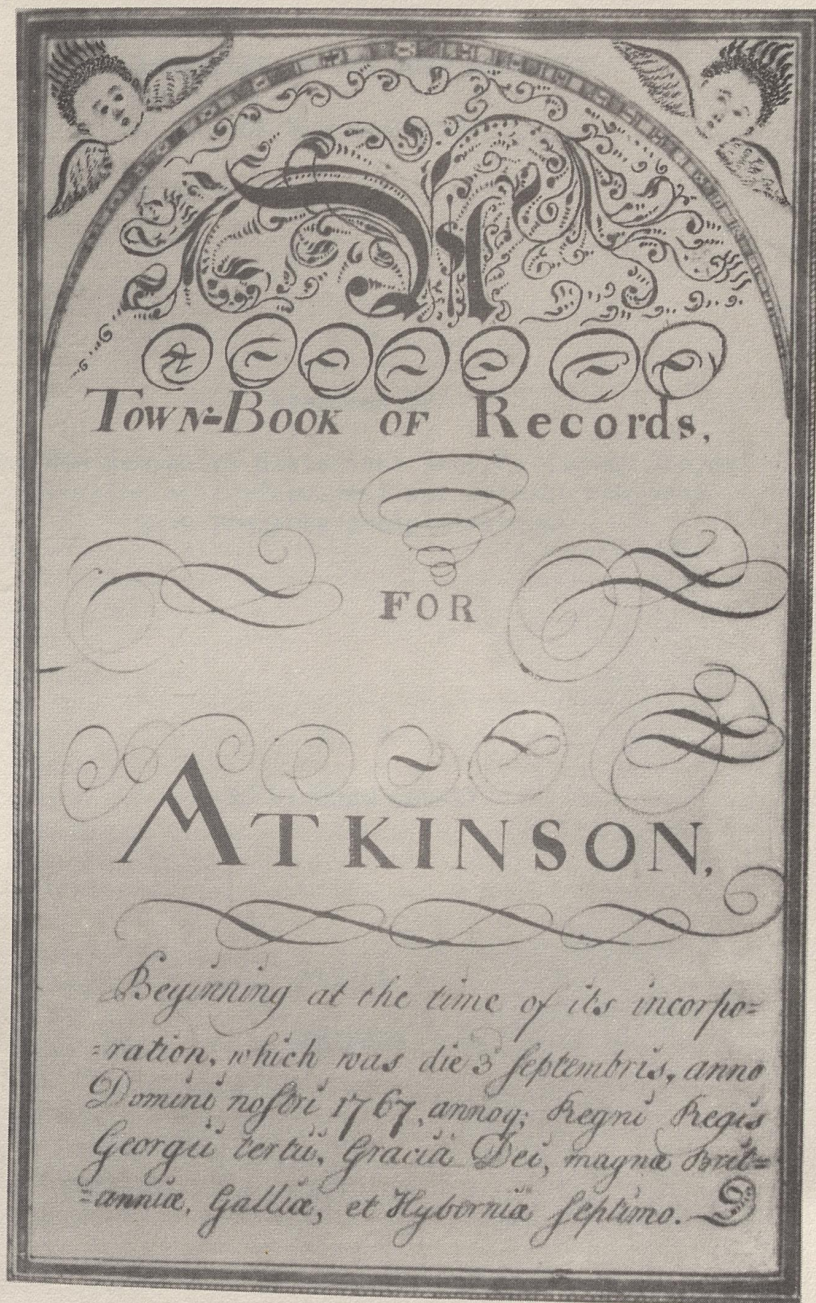 A
Town-Book of Records,
FOR
ATKINSON,
Beginning at the time of its incorpo=
=ration, which was die 3 Septembris, anno
Domini nostri 1767, annoq; Regni Regis
Georgii tertii, Gracia Dei, magnæ Brit=
=anniæ, Galliæ, et Hyberniæ septimo.